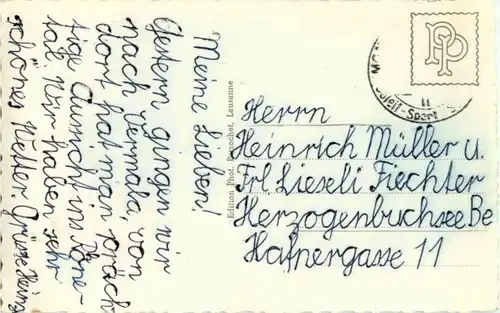 Meine Lieben!
Gestern gingen wir
nach Vermala, von
dort hat man präch
tige Aussicht ins Rone-
tal. Wir haben sehr
schönes Wetter Grüsse Heinz
Edition Phot. Perrochet, Lausanne
PP
Sport
Herrn
Heinrich Müller u.
Frl. Lieseli Fiechter
Herzogenbuchsee Be
Hafnergasse 11